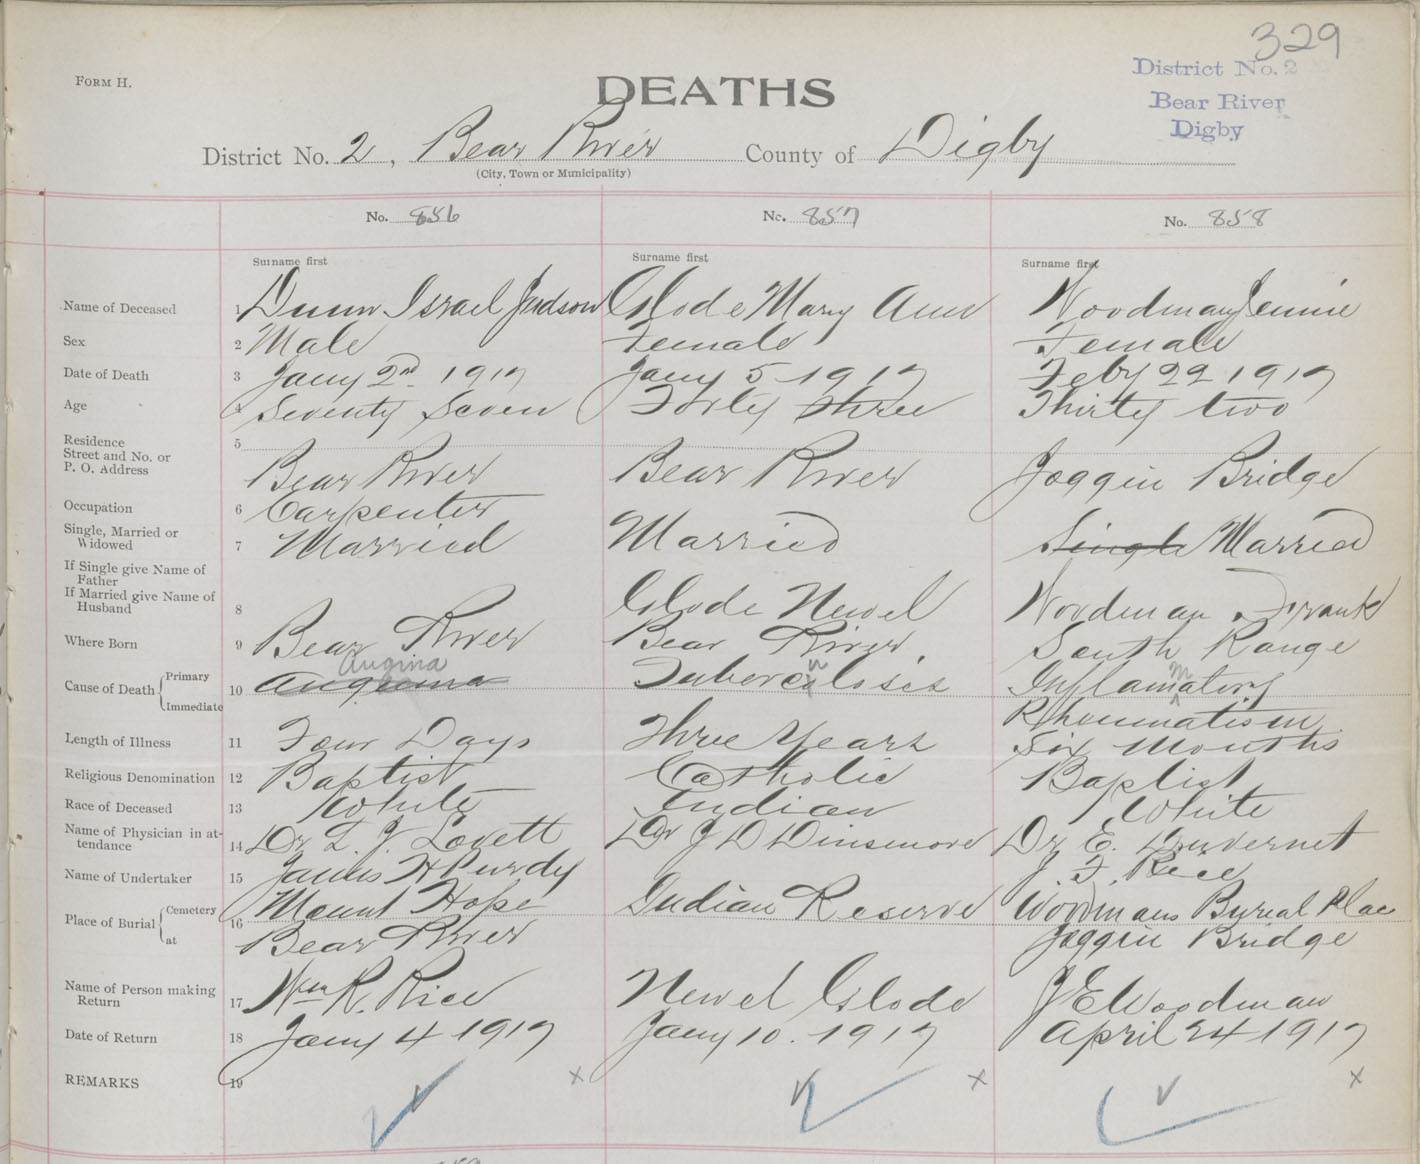 329
District No. 2
Bear River
Digby
FORM H.
DEATHS
District No. 2, Bear River County of Digby
(City, Town or Municipality)
No. 856 No. 857 No. 858
Surname first Surname first Surname first
Name of Deceased 1 Dunn Israel Judson Glode Mary Ann Woodman Jennie
Sex 2 Male Female Female
Date of Death 3 Jany 2nd 1917 Jany 5 1917 Feby 22 1917
Age 4 Seventy Seven Forty three Thirty two
Residence
Street and No. or
P. O. Address
5 Bear River Bear River Joggin Bridge
Occupation 6 Carpenter
Single, Married or
Widowed
7 Married Married Single Married
If Single give Name of
Father
If Married give Name of
Husband
8 Glode Newel Woodman Frank
Where Born 9 Bear River Bear River. South Range
Cause of Death Primary
Immediate
10 Angina Tuberculosis Inflammatory
Rheumatism
Length of Illness 11 Four Days Three Years Six Months
Religious Denomination 12 Baptist Catholic Baptist
Race of Deceased 13 White Indian White
Name of Physician in at-
tendance
14 Dr. L. J. Lovett Dr J D Dinsmore Dr E. Duvernet
Name of Undertaker 15 James H Purdy J. F. Rice
Place of Burial Cemetery
at
16 Mount Hope Indian Reserve Woodmans Bureal Place
Bear River Joggin Bridge
Name of Person making
Return
17 Wm R. Rice Newel Glode J E Woodman
Date of Return 18 Jany 4 1917 Jany 10. 1917 April 24 1917
REMARKS 19 x x x